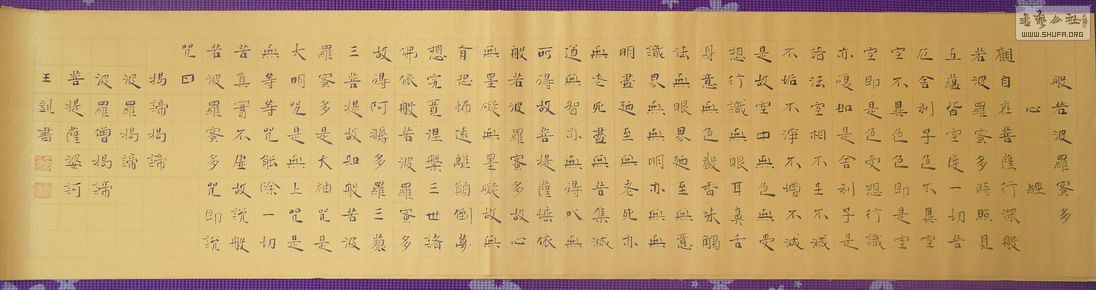 般若波羅蜜多
心經
觀自在菩薩行深般
若波羅蜜多時照見
五蘊皆空度一切苦
厄舍利子色不異空
空不異色色即是空
空即是色受想行識
亦復如是舍利子是
諸法空相不生不滅
不垢不淨不增不減
是故空中無色無受
想行識無眼耳鼻舌
身意無色聲香味觸
法無眼界廼至無意
識界無無明亦無無
明盡廼至無老死亦
無老死盡無苦集滅
道無智亦無得以無
所得故菩提薩埵依
般若波羅蜜多故心
無罣礙無罣礙故無
有恐怖遠離顛倒夢
想究竟涅槃三世諸
佛依般若波羅蜜多
故得阿耨多羅三藐
三菩提故知般若波
羅蜜多是大神咒是
大明咒是無上咒是
無等等咒能除一切
苦真實不虛故說般
若波羅蜜多咒即說
咒曰
揭諦揭諦
波羅揭諦
波羅僧揭諦
菩提薩婆訶
王釗書
书艺公社
WWW.SHUFA.ORG